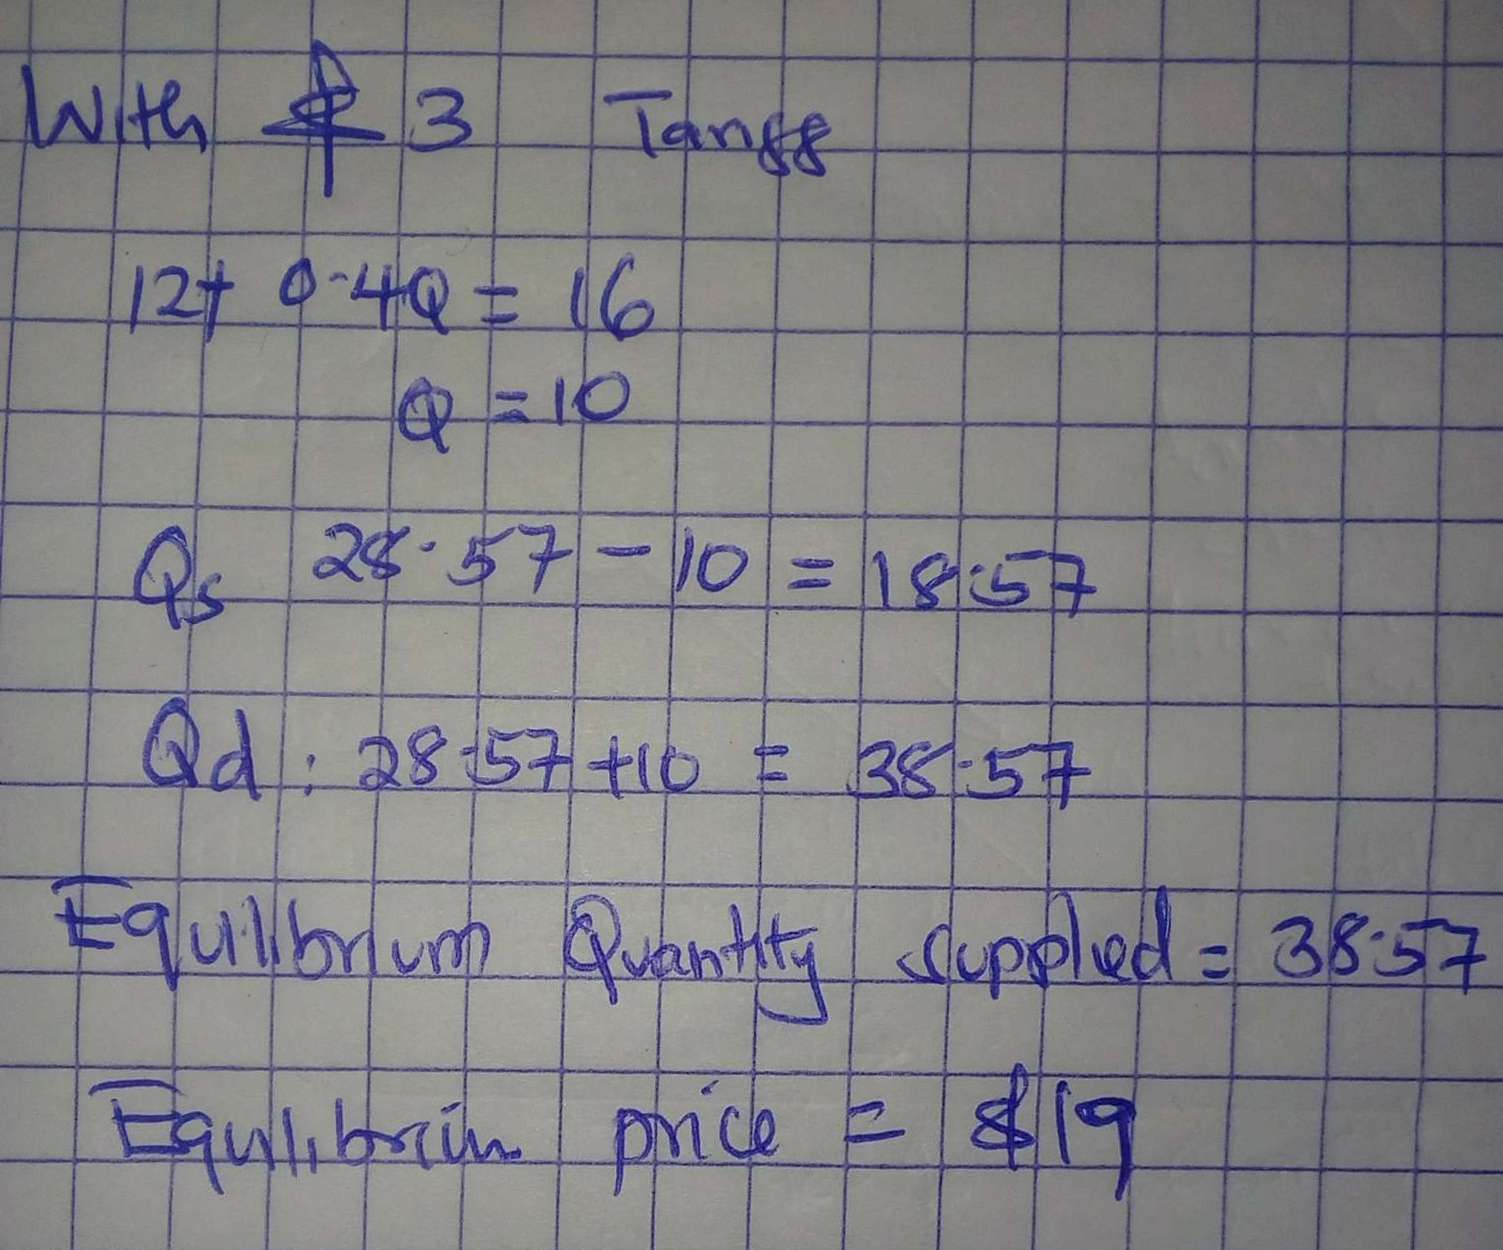 With $ 3 Tanff
12+ 0.4Q = 16
Q = 10
Qs 28.57 - 10 = 18.57
Qd : 28.57 + 10 = 38.57
Equilibrium Quantity supplied = 38.57
Equilibrium price = $19